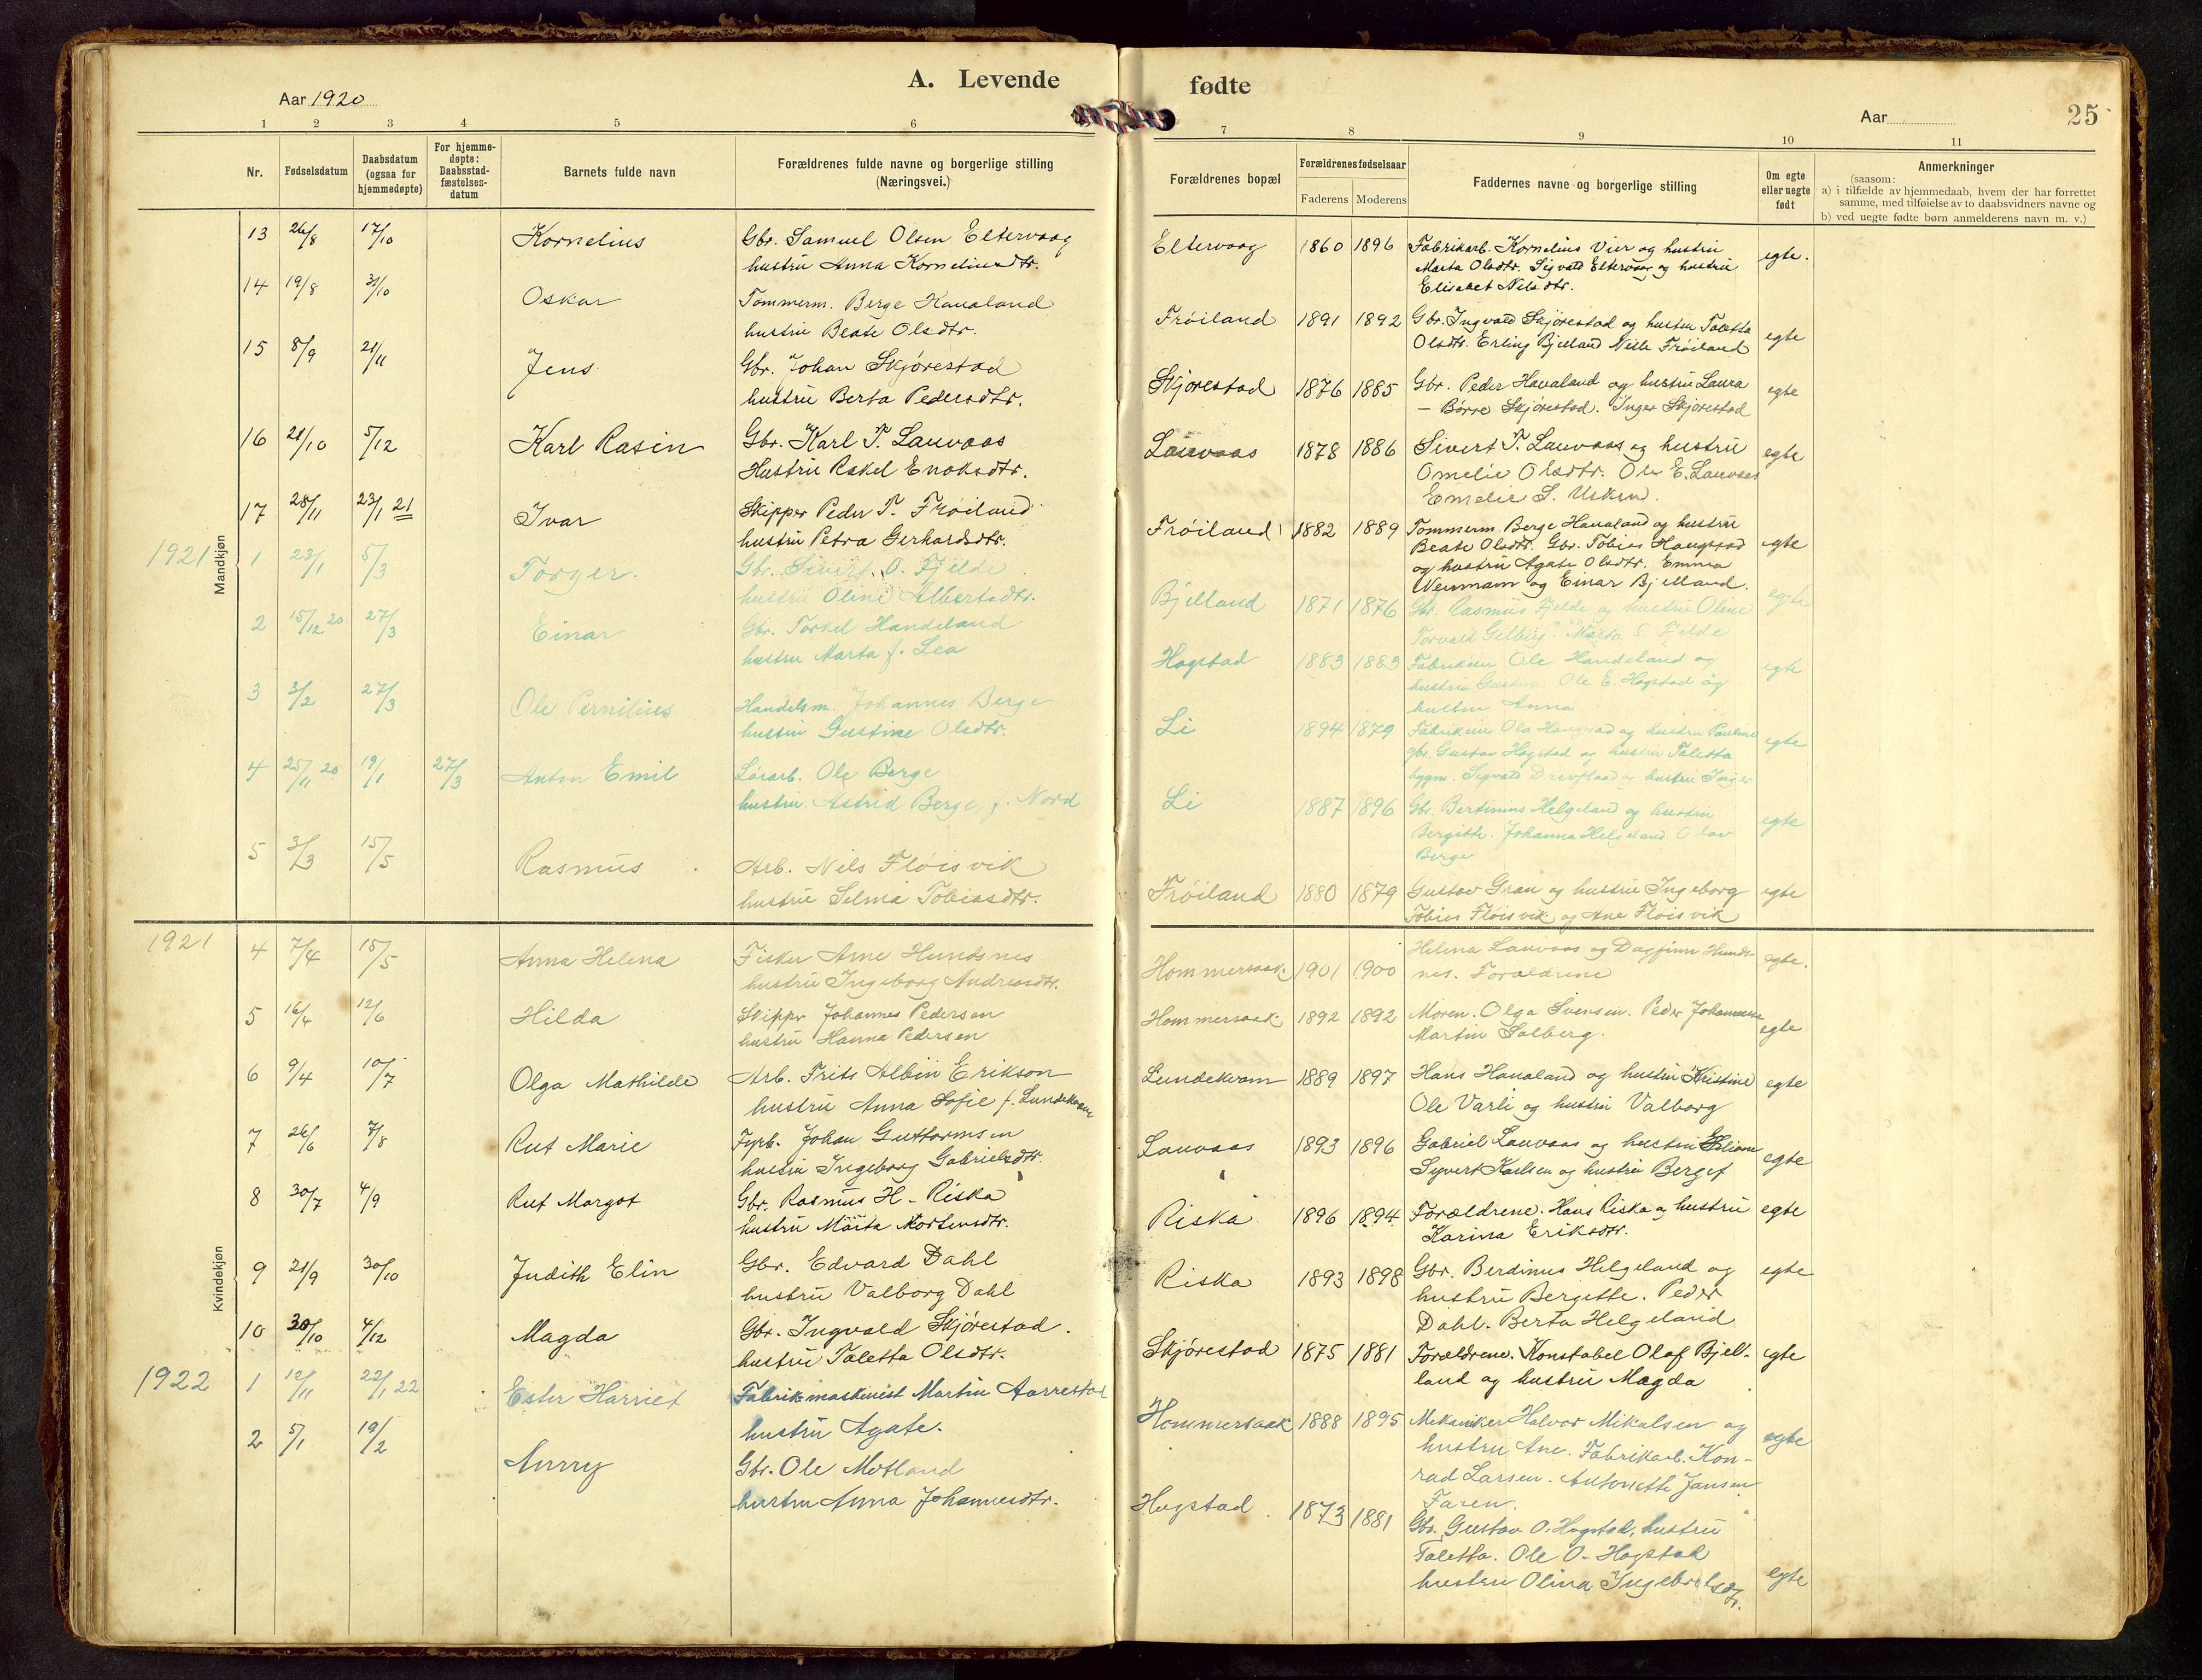 A. Levende fødte
Aar 1920
Aar
25
1 2 3 4 5 6 7 8 9 10 11
Nr.
Fødselsdatum
Daabsdatum
(ogsaa for
hjemmedøpte)
For hjemme-
døpte:
Daabsstad-
fæstelses-
datum
Barnets fulde navn
Forældrenes fulde navne og borgerlige stilling
(Næringsvei.)
Forældrenes bopæl
Forældrenes fødselsaar
Faderens Moderens
Faddernes navne og borgerlige stilling
Om egte
eller uegte
født
Anmerkninger
(saasom:
a) i tilfælde av hjemmedaab, hvem der har forrettet
samme, med tilføielse av to daabsvidners navne og
b) ved uegte fødte børn anmelderens navn m. v.)
Mandkjøn
13 26/8 17/10 Kornelius Gbr. Samuel Olsen Eltervaag
hustru Anna Korneliusdtr.
Eltervaag 1860 1896 Fabrikarb. Kornelius Vier og hustru
Marta Olsdtr. Sigvald Eltervaag og hustru
Elisabet Nilsdtr.
egte.
14 19/8 31/10 Oskar Tømmerm. Berge Haualand
hustru Beate Olsdtr.
Frøiland 1891 1892 Gbr. Ingvald Skjørestad og hustru Taletta
Olsdtr. Erling Bjelland Nille Frøiland
egte
15 8/9 21/11 Jens Gbr. Johan Skjørestad
hustru Berta Pedersdtr.
Skjørestad 1876 1885 Gbr. Peder Haualand og hustru Laura
– Børre Skjørestad. Inger Skjørestad
egte
16 21/10 5/12 Karl Rasin Gbr. Karl T. Lauvaas
Hustru Rakel Enoksdtr.
Lauvaas 1878 1886 Sivert T. Lauvaas og hustru
Omelie Olsdtr. Ole E. Lauvaas
Emelie S. Usken.
egte
17 28/11 23/1 21 Ivar Skipper Peder T. Frøiland
hustru Petra Gerhardsdtr.
Frøiland 1882 1889 Tømmerm. Berge Haualand og hustru
Beate Olsdtr. Gbr. Tobias Haugstad
og hustru Agate Olsdtr. Emma
Neumann og Einar Bjelland.
egte
1921
1 23/1 5/3 Torger. Gbr. Sivert O. Fjelde
hustru Oline Albertsdtr.
Bjelland 1871 1876 Gbr. Rasmus Fjelde og hustru Oline
Torvald Gilberg. Marta S. Fjelde
egte
2 15/12 20 27/3 Einar Gbr. Torkel Handeland
hustru Marta f. Lea
Hogstad 1883 1883 Fabrikeier Ole Handeland og
hustru Gustine Ole E. Hogstad og
hustru Anna
egte
3 3/2 27/3 Ole Pernilius Handelsm. Johannes Berge
hustru Gustine Olsdtr.
Li 1894 1879 Fabrikeier Ole Haugstad og hustru Pauline
gbr. Gustav Hogstad og hustru Taletta
byggm. Sigvald Drevland og hustru Inger
egte
4 25/11 20 19/1 27/3 Anton Emil Løsarb. Ole Berge
hustru Astrid Berge f. Nord
Li 1887 1896 Gbr. Bertinius Helgeland og hustru
Bergitte. Johanna Helgeland Olav
Berge
egte
5 3/3 15/5 Rasmus Arb. Nils Fløisvik
hustru Selma Tobiasdtr.
Frøiland 1880 1879 Gustav Gran og hustru Ingeborg
Tobias Fløisvik og Ane Fløisvik
egte
Kvindekjøn
1921
4 7/4 15/5 Anna Helena Fisker Arne Hundsnes
hustru Ingeborg Andreasdtr.
Hommersaak. 1901 1900 Helena Lauvaas og Dagfinn Hunds-
nes. Forældrene
egte.
5 16/4 12/6 Hilda Skipper Johannes Pedersen
hustru Hanna Pedersen
Hommersaak 1892 1892 Moren. Olga Svensen. Peder Johannesen
Martin Solberg.
egte
6 9/4 10/7 Olga Mathilde Arb. Frits Albin Erikson
hustru Anna Sofie f. Lundekvam
Lundekvam 1889 1897 Hans Haualand og hustru Kristine
Ole Varli og hustru Valborg
egte
7 26/6 7/8 Rut Marie Fyrb. Johan Guttormsen
hustru Ingeborg Gabrielsdtr.
Lauvaas 1893 1896 Gabriel Lauvaas og hustru
Syvert Karlsen og hustru Berget
egte
8 30/7 4/9 Rut Margot Gbr. Rasmus H. Riska
hustru Marta Mortensdtr.
Riska 1896 1894 Forældrene. Hans Riska og hustru
Karina Eriksdtr.
egte
9 21/9 30/10 Judith Elin Gbr. Edvard Dahl
hustru Valborg Dahl
Riska 1893 1898 Gbr. Berdinus Helgeland og
hustru Bergitte. Peder
Dahl. Berta Helgeland
egte
10 30/10 4/12 Magda Gbr. Ingvald Skjørestad.
hustru Taletta Olsdtr.
Skjørestad 1875 1881 Forældrene. Konstabel Olaf Bjel-
land og hustru Magda
egte
1922
1 12/11 22/1 22 Ester Harriet Fabrikmaskinist Martin Aarrestad
hustru Agate.
Hommersaak 1888 1895 Mekaniker Halvor Mikalsen og
hustru Ane. Fabrikarb. Kon-
rad Larsen. Antonette Jansen
Faren.
egte
2 5/1 19/2 Anny Gbr. Ole Motland
hustru Anna Johannesdtr.
Hogstad. 1873 1881 Gbr. Gustav O. Hogstad, hustru
Taletta. Ole O. Hogstad
hustru Olina Ingebretsdtr.
egte